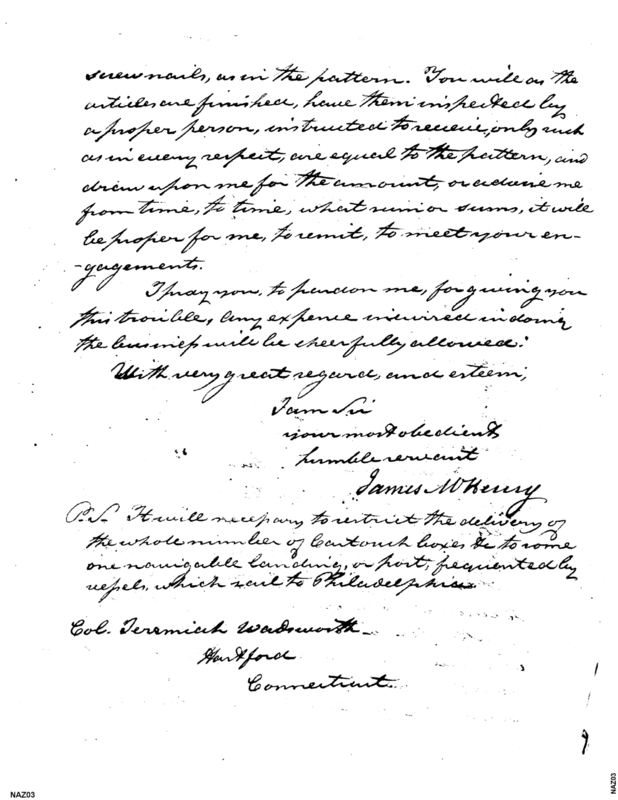 screw nails, as in the pattern. You will as the
articles are finished, have them inspected by
a proper person, instructed to receive, only such
as in every respect, are equal to the pattern, and
draw upon me for the amount, or advise me
from time, to time, what sum or sums, it will
be proper for me, to remit, to meet your en-
-gagements.
I pray you, to pardon me, for giving you
this trouble, any expence incurred in doing
the business will be cheerfully allowed.
With very great regard, and esteem,
I am Sir
your most obedient
humble servant
James McHenry
P.S. It will necessary to restrict the delivery of
the whole number of Cartouch boxes &c to some
one navigable landing, or port, frequented by
vessels, which sail to Philadelphia
Col. Jeremiah Wadsworth
Hartford
Connecticut.
NAZ03
NAZ03